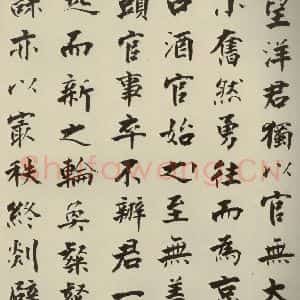 望洋君獨以官無大
奮然勇往而為京
酒官始之至無
頭官事卒不辦君一
而新之輪奐粲
亦以㝡秩終剡
Shufawang.CN